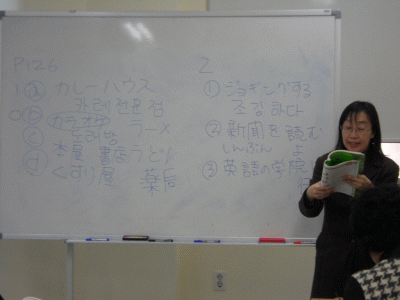 P126
1 ⓐ カレーハウス
카레전문점
ⓑ カラオケ ラーメ
ⓒ 노래방
ⓓ 本屋 書店 うどん
くすり屋 薬局
2
① ジョギングする
조깅하다
② 新聞を読む
しんぶん よ
③ 英語の学院